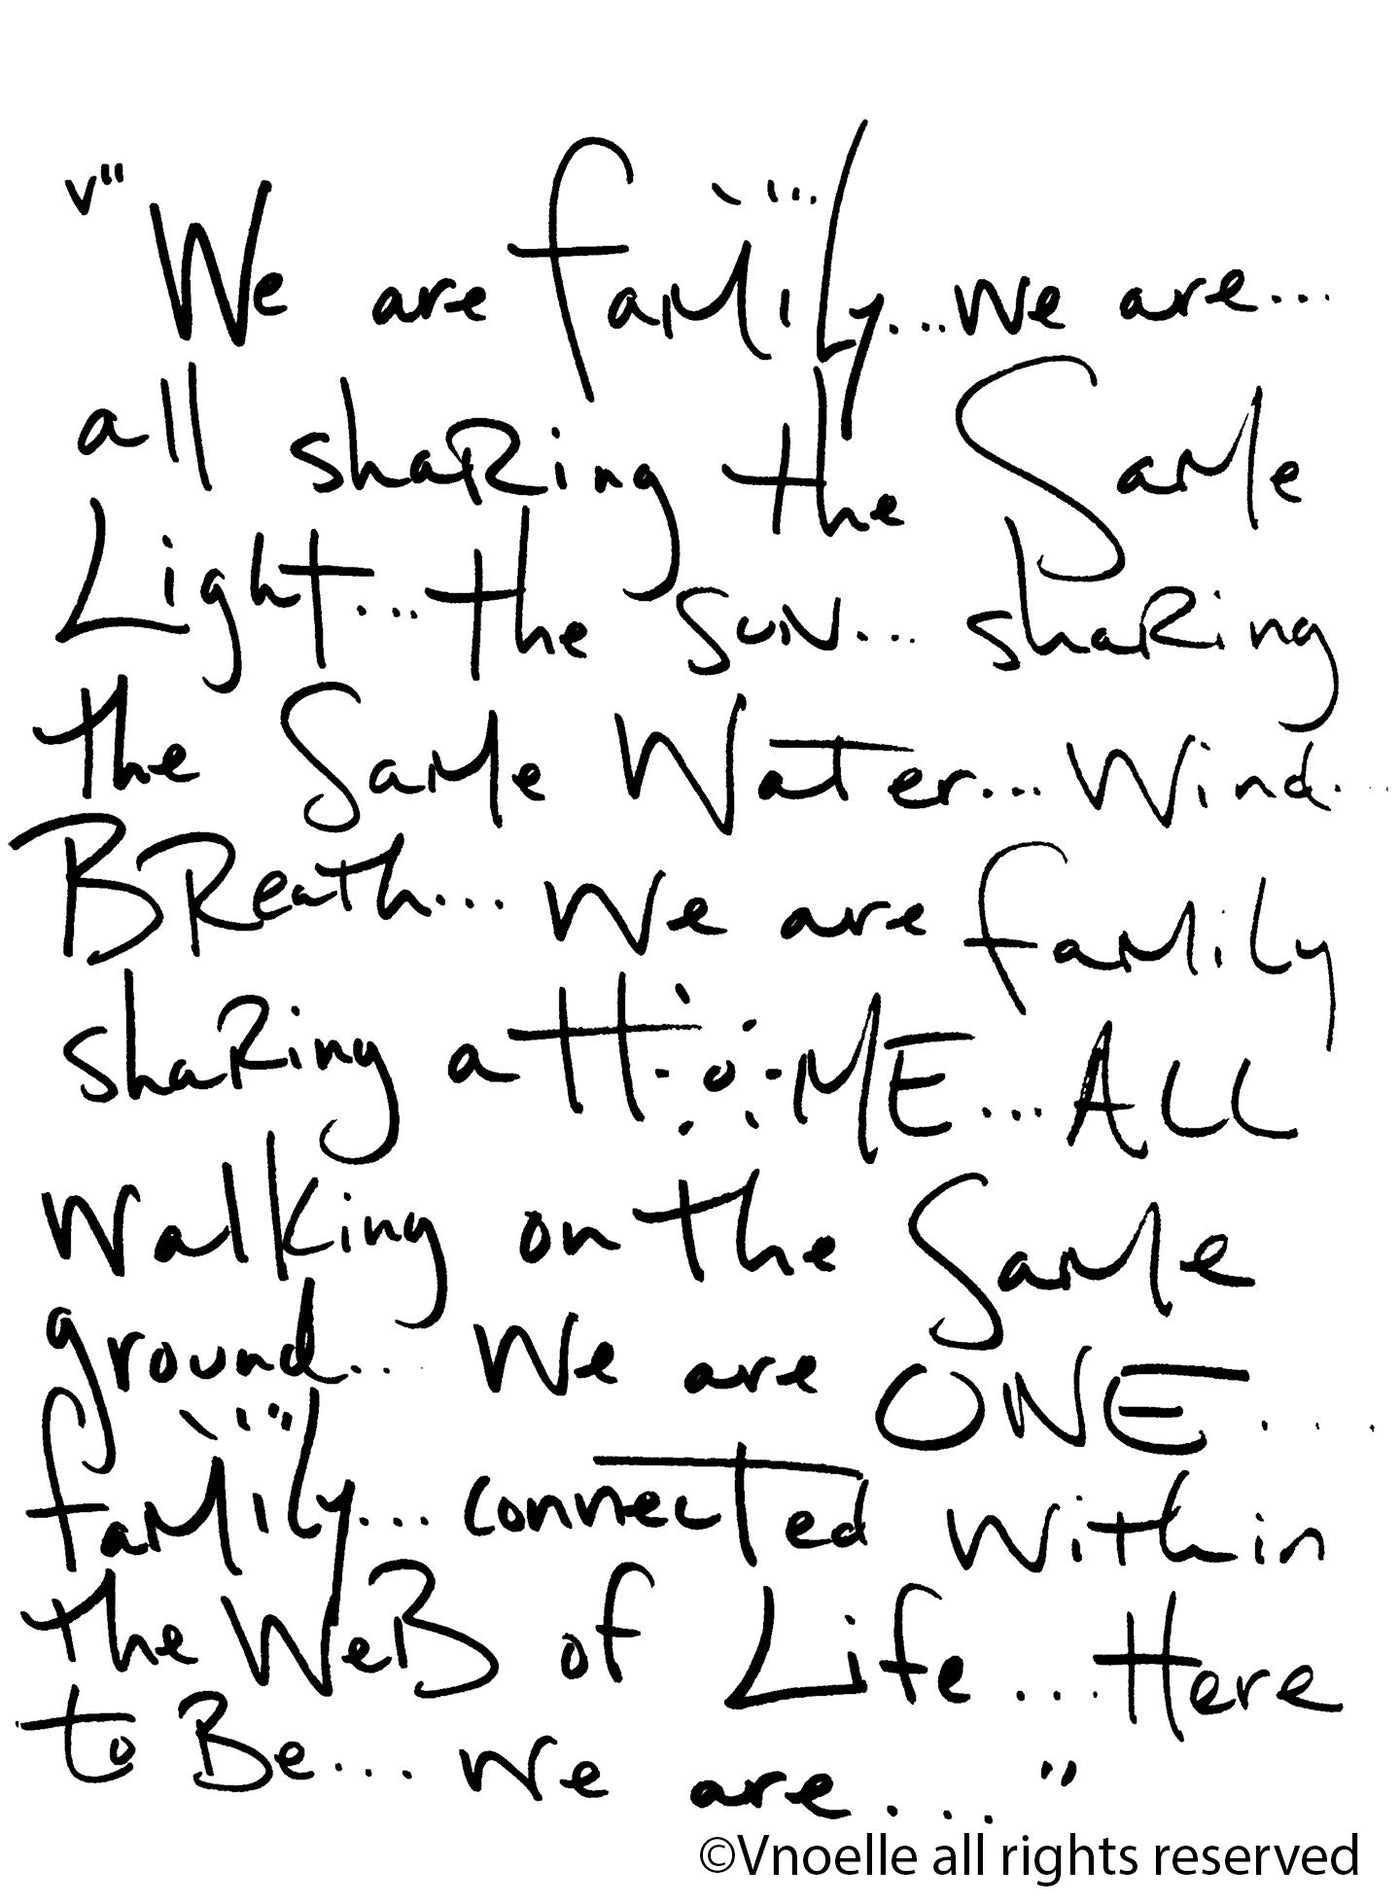 v" We are faMily...we are...
all shaRing the SaMe
Light...the suN... shaRing
the SaMe WaTer... Wind..
BReath... We are faMily
shaRing a HoME... ALL
walking on the SaMe
ground... We are ONE....
faMily... connecTed within
the WeB of Life... Here
to Be... we are..."
©Vnoelle all rights reserved